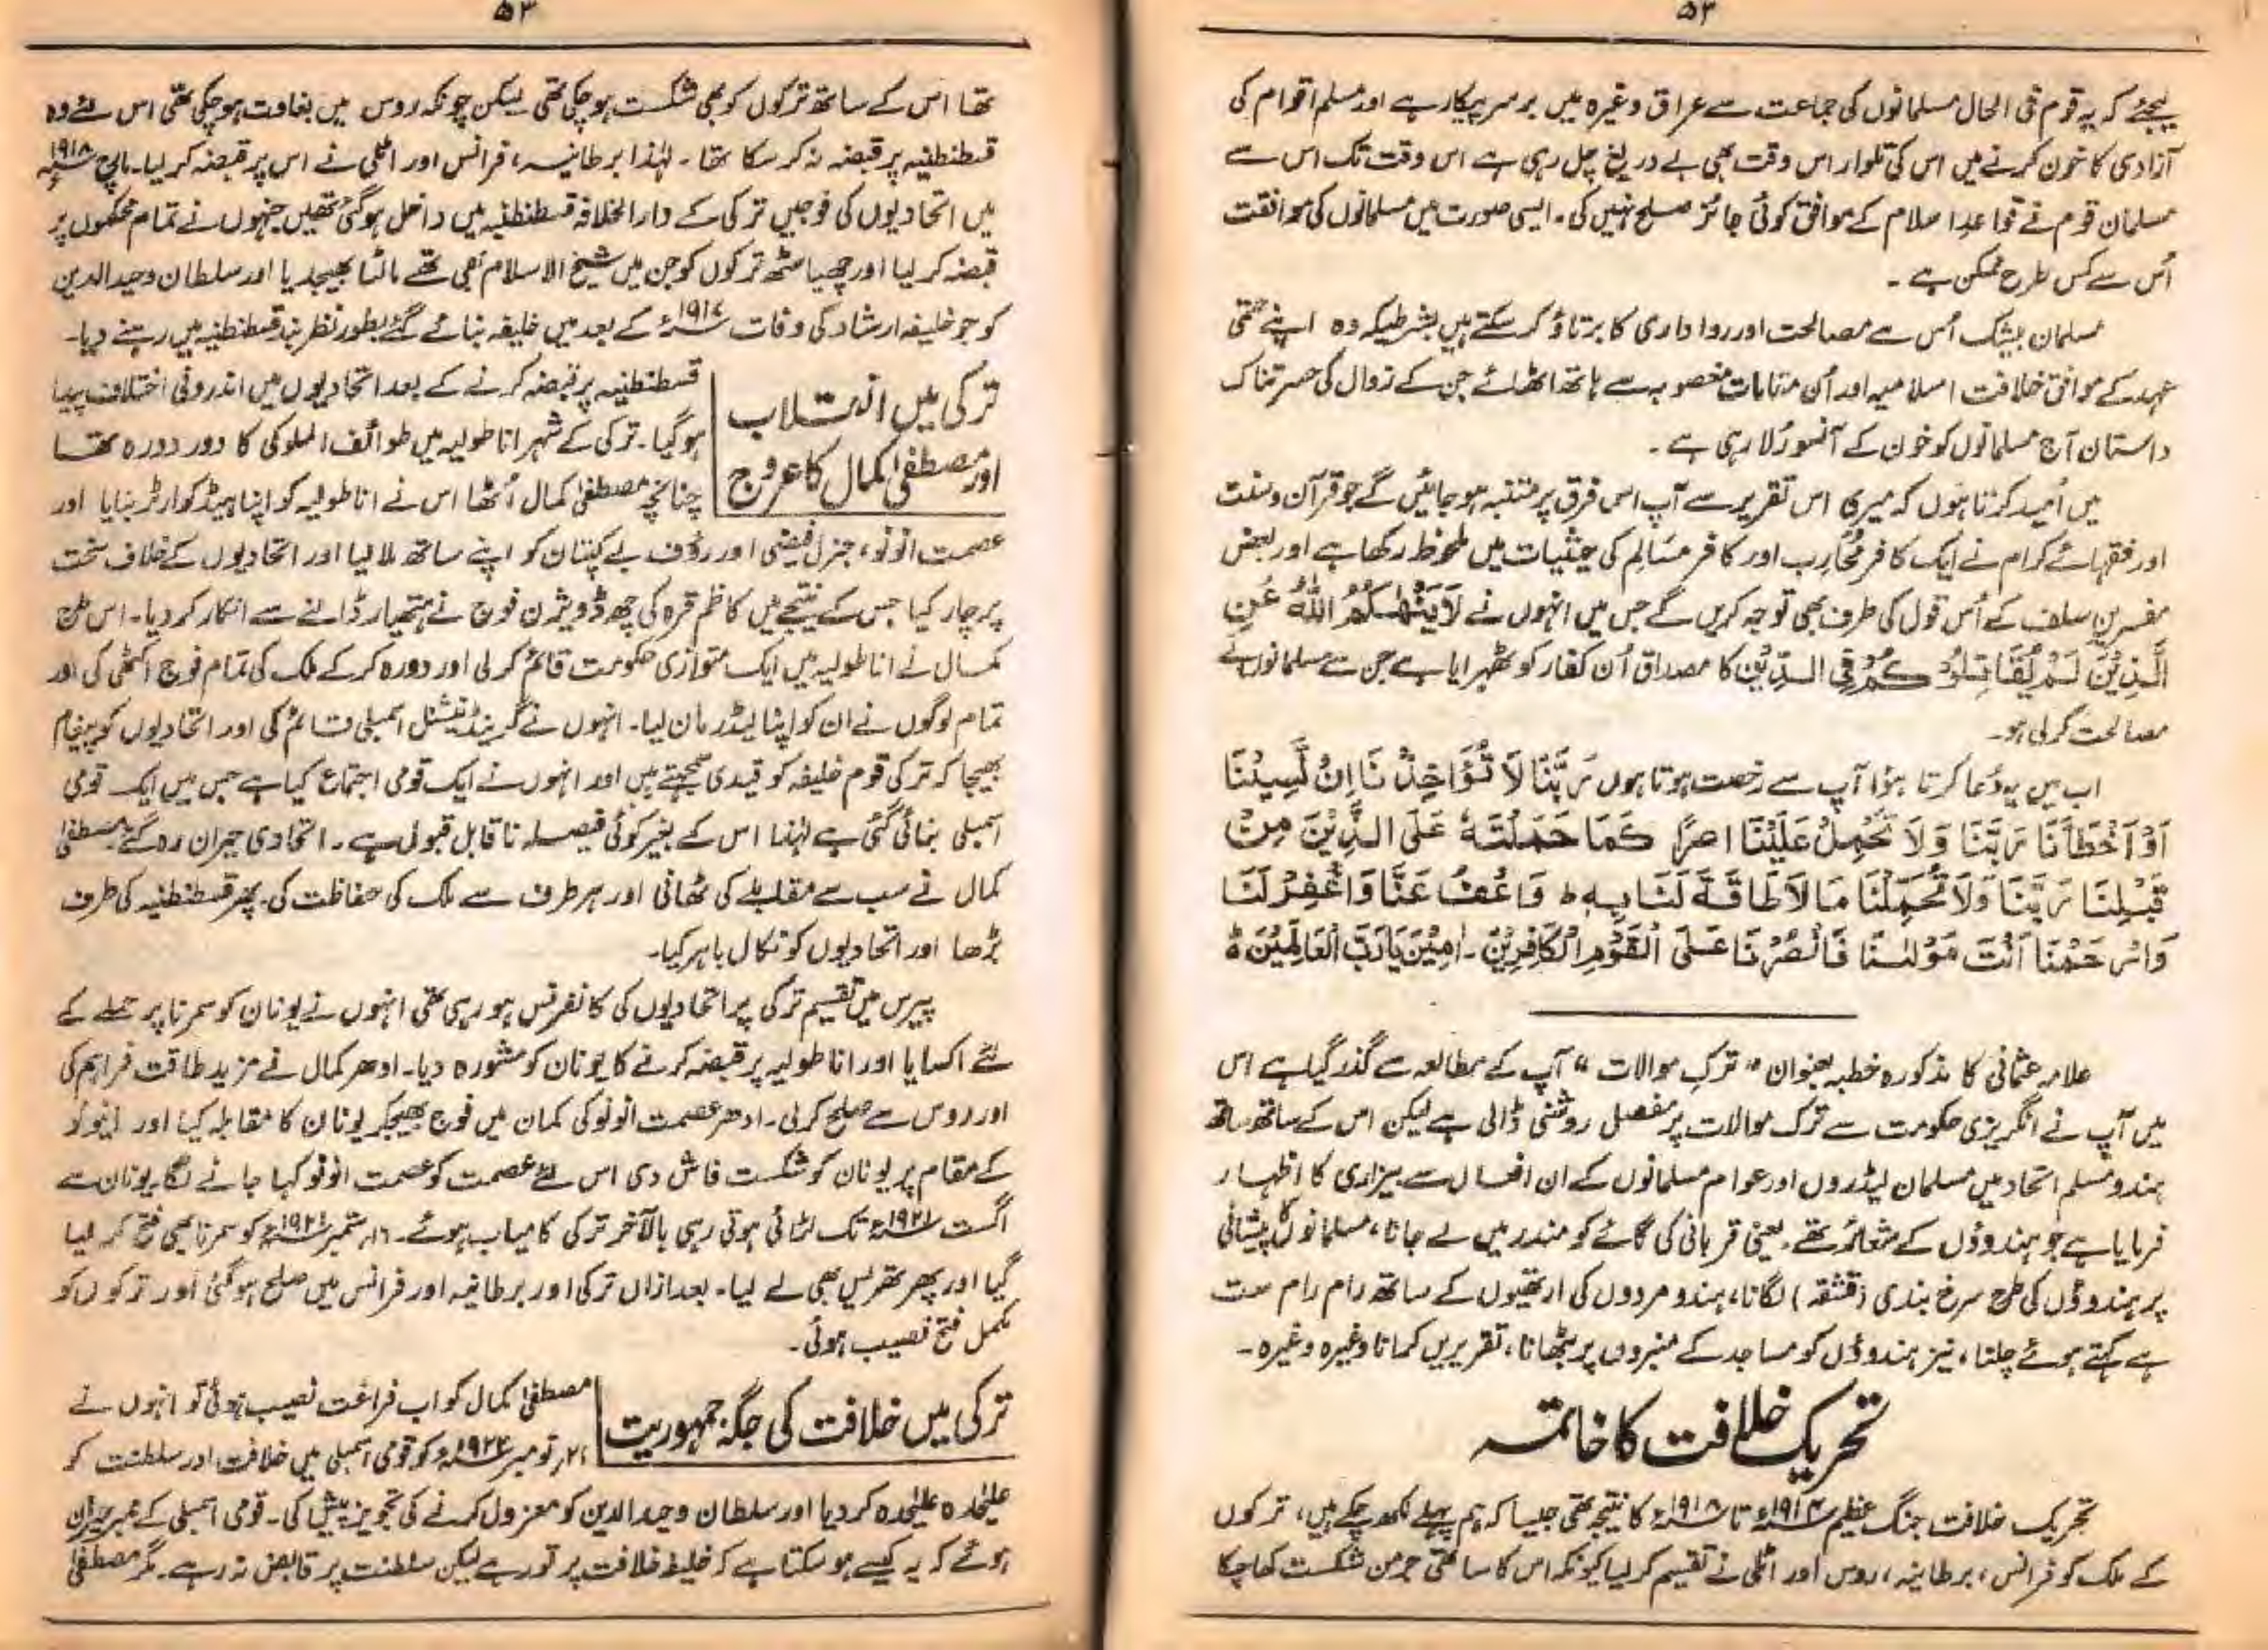 ۵۳
لیجئے کہ یہ قوم فی الحال مسلمانوں کی جماعت سے عراق وغیرہ میں برسر پیکار ہے اور مسلم اقوام کی
آزادی کا خون کرنے میں اس کی تلوار اس وقت بھی بے دریغ چل رہی ہے اس وقت تک اس سے
مسلمان قوم نے قواعدِ اسلام کے موافق کوئی جائز صلح نہیں کی۔ ایسی صورت میں مسلمانوں کی موافقت
اُس سے کس طرح ممکن ہے۔
مسلمان بیشک اُس سے مصالحت اور رواداری کا برتاؤ کر سکتے ہیں بشرطیکہ وہ اپنے حتمی
عہد کے موافق خلافت اسلامیہ اور اُن مقاماتِ مغصوبہ سے ہاتھ اٹھالے جن کے زوال کی حسرتناک
داستان آج مسلمانوں کو خون کے آنسو رُلا رہی ہے۔
میں اُمید کرتا ہوں کہ میری اس تقریر سے آپ اس فرق پر متنبہ ہو جائیں گے جو قرآن و سنت
اور فقہائے کرام نے ایک کافر مُحَارِب اور کافر مسَالِم کی حیثیات میں ملحوظ رکھا ہے اور بعض
مفسرینِ سلف کے اُس قول کی طرف بھی توجہ کریں گے جس میں انہوں نے لَا یَنْھٰکُمُ اللّٰہُ عَنِ
الَّذِیْنَ لَمْ یُقَاتِلُوْکُمْ فِی الدِّیْنِ کا مصداق اُن کفار کو ٹھہرایا ہے جن سے مسلمانوں نے
مصالحت کرلی ہو۔
اب میں یہ دُعا کرتا ہوا آپ سے رخصت ہوتا ہوں رَبَّنَا لَا تُؤَاخِذْنَا اِنْ نَّسِیْنَا
اَوْ اَخْطَأْنَا رَبَّنَا وَلَا تَحْمِلْ عَلَیْنَا اِصْرًا کَمَا حَمَلْتَہٗ عَلَی الَّذِیْنَ مِنْ
قَبْلِنَا رَبَّنَا وَلَا تُحَمِّلْنَا مَا لَا طَاقَۃَ لَنَا بِہٖ ط وَاعْفُ عَنَّا وَاغْفِرْ لَنَا
وَارْحَمْنَا اَنْتَ مَوْلٰنَا فَانْصُرْنَا عَلَی الْقَوْمِ الْکَافِرِیْنَ۔ اٰمِیْنَ یَا رَبَّ الْعَالَمِیْنَ ط
علامہ عثمانی کا مذکورہ خطبہ بعنوان "ترکِ موالات" آپ کے مطالعہ سے گذر گیا ہے اس
میں آپ نے انگریزی حکومت سے ترک موالات پر مفصل روشنی ڈالی ہے لیکن اس کے ساتھ ساتھ
ہندو مسلم اتحاد میں مسلمان لیڈروں اور عوام مسلمانوں کے ان افعال سے بیزاری کا اظہار
فرمایا ہے جو ہندوؤں کے شعائر تھے۔ یعنی قربانی کی گائے کو مندر میں لے جانا، مسلمانوں کا پیشانی
پر ہندوؤں کی طرح سرخ بندی (قشقہ) لگانا، ہندو مردوں کی ارتھیوں کے ساتھ رام رام ست
ہے کہتے ہوئے چلنا، نیز ہندوؤں کو مساجد کے منبروں پر بٹھانا، تقریریں کرانا وغیرہ وغیرہ۔
تحریک خلافت کا خاتمہ
تحریک خلافت جنگ عظیم ۱۹۱۴ء تا ۱۹۱۸ء کا نتیجہ تھی جیسا کہ ہم پہلے لکھ چکے ہیں، ترکوں
کے ملک کو فرانس، برطانیہ، روس اور اٹلی نے تقسیم کر لیا کیونکہ اس کا ساتھی جرمن شکست کھا چکا
۵۳
تھا اس کے ساتھ ترکوں کو بھی شکست ہو چکی تھی لیکن چونکہ روس میں بغاوت ہو چکی تھی اس لئے وہ
قسطنطنیہ پر قبضہ نہ کر سکا تھا۔ لہٰذا برطانیہ، فرانس اور اٹلی نے اس پر قبضہ کر لیا۔ مارچ ۱۹۱۸ء
میں اتحادیوں کی فوجیں ترکی کے دارالخلافہ قسطنطنیہ میں داخل ہو گئی تھیں جنہوں نے تمام محکموں پر
قبضہ کر لیا اور چھیاسٹھ ترکوں کو جن میں شیخ الاسلام بھی تھے مالٹا بھیجدیا اور سلطان وحید الدین
کو جو خلیفہ ارشاد کی وفات کے بعد میں خلیفہ بنائے گئے بطور نظر بند قسطنطنیہ میں رہنے دیا۔
ترکی میں انقلاب
اور مصطفیٰ کمال کا عروج
قسطنطنیہ پر قبضہ کرنے کے بعد اتحادیوں میں اندرونی اختلاف پیدا
ہو گیا۔ ترکی کے شہر اناطولیہ میں طوائف الملوکی کا دور دورہ تھا
چنانچہ مصطفیٰ کمال اُٹھا اس نے اناطولیہ کو اپنا ہیڈکوارٹر بنایا اور
عصمت انونو، جنرل فیضی اور رؤف بے کپتان کو اپنے ساتھ ملا لیا اور اتحادیوں کے خلاف سخت
پرچار کیا جس کے نتیجے میں کاظم قرہ کی چھ ڈویژن فوج نے ہتھیار ڈالنے سے انکار کر دیا۔ اس طرح
کمال نے اناطولیہ میں ایک متوازی حکومت قائم کر لی اور دورہ کر کے ملک کی تمام فوج اکٹھی کی اور
تمام لوگوں نے ان کو اپنا لیڈر مان لیا۔ انہوں نے گرینڈ نیشنل اسمبلی قائم کی اور اتحادیوں کو پیغام
بھیجا کہ ترکی قوم خلیفہ کو قیدی سمجھتے ہیں اور انہوں نے ایک قومی اجتماع کیا ہے جس میں ایک قومی
اسمبلی بنائی گئی ہے لہٰذا اس کے بغیر کوئی فیصلہ نا قابل قبول ہے۔ اتحادی حیران رہ گئے۔ مصطفیٰ
کمال نے سب سے مقابلے کی ٹھانی اور ہر طرف سے ملک کی حفاظت کی۔ پھر قسطنطنیہ کی طرف
بڑھا اور اتحادیوں کو نکال باہر کیا۔
پیرس میں تقسیم ترکی پر اتحادیوں کی کانفرنس ہو رہی تھی انہوں نے یونان کو سمرنا پر حملے کے
لئے اکسایا اور اناطولیہ پر قبضہ کرنے کا یونان کو مشورہ دیا۔ ادھر کمال نے مزید طاقت فراہم کی
اور روس سے صلح کر لی۔ ادھر عصمت انونو کی کمان میں فوج بھیجکر یونان کا مقابلہ کیا اور انونو
کے مقام پر یونان کو شکست فاش دی اس لئے عصمت کو عصمت انونو کہا جانے لگا یونان سے
اگست ۱۹۲۱ء تک لڑائی ہوتی رہی بالآخر ترکی کامیاب ہوئے۔ ۱۶ ستمبر ۱۹۲۱ء کو سمرنا بھی فتح کر لیا
گیا اور پھر تھریس بھی لے لیا۔ بعد ازاں ترکی اور برطانیہ اور فرانس میں صلح ہو گئی اور ترکوں کو
مکمل فتح نصیب ہوئی۔
ترکی میں خلافت کی جگہ جمہوریت
مصطفیٰ کمال کو اب فراغت نصیب ہوئی تو انہوں نے
نومبر ۱۹۲۲ء کو قومی اسمبلی میں خلافت اور سلطنت کو
علیٰحدہ علیٰحدہ کر دیا اور سلطان وحید الدین کو معزول کرنے کی تجویز پیش کی۔ قومی اسمبلی کے ممبر حیران
ہوئے کہ یہ کیسے ہو سکتا ہے کہ خلیفہ خلافت پر تو رہے لیکن سلطنت پر قابض نہ رہے۔ مگر مصطفیٰ